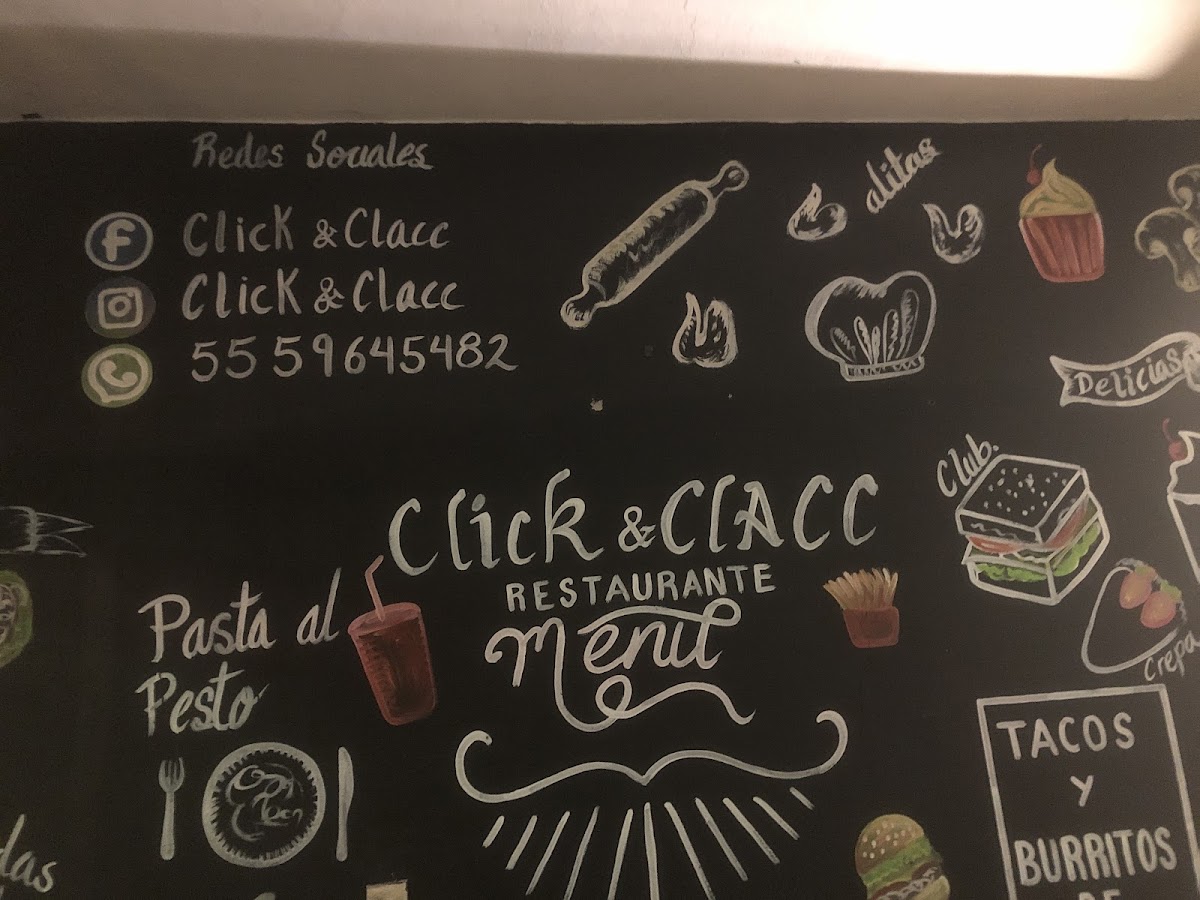 Redes Sociales
Click & Clacc
Click & Clacc
55 59645482
alitas
Delicias
Club.
Click & ClACC
RESTAURANTE
Menú
Pasta al
Pesto
Crepa
TACOS
Y
BURRITOS
DE
das